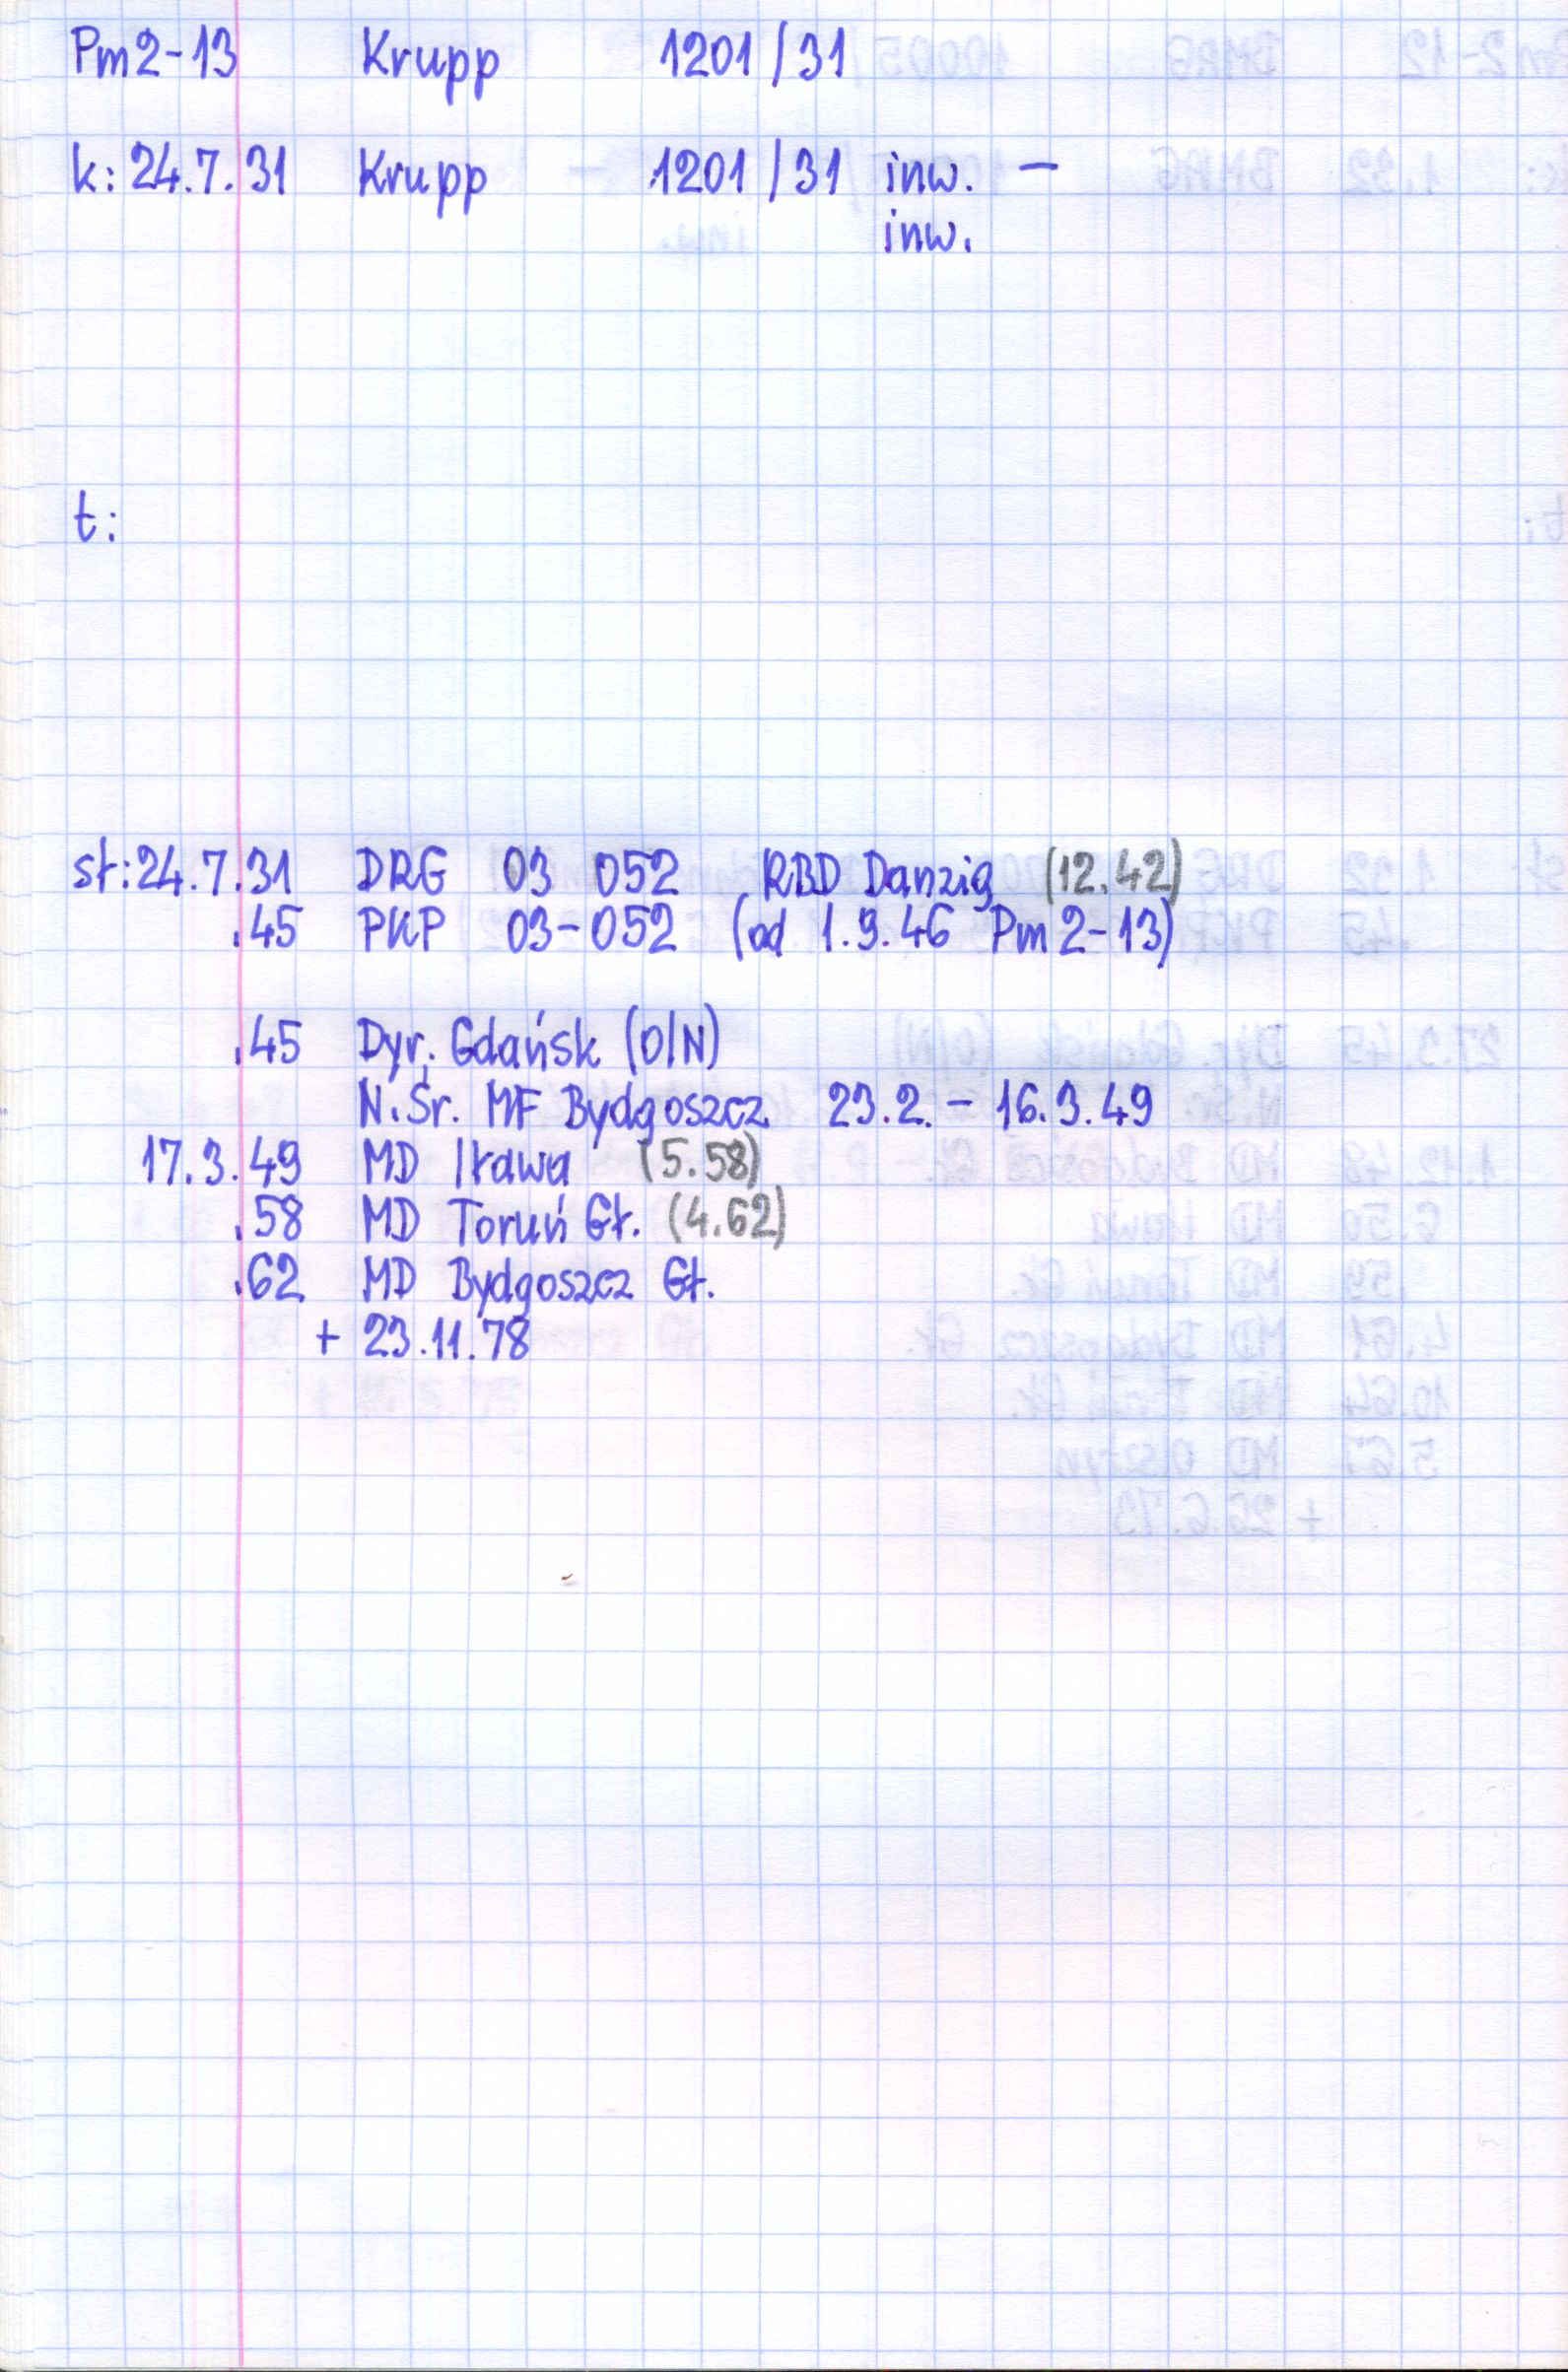 Pm2-13 Krupp 1201/31
k: 24.7.31 Krupp – 1201/31 inw. –
inw.
t:
st: 24.7.31 DRG 03 052 RBD Danzig (12.42)
.45 PKP 03-052 (od 1.9.46 Pm2-13)
.45 Dyr. Gdańsk (O/N)
N.Śr. MF Bydgoszcz 23.2. – 16.3.49
17.3.49 MD Iława (5.58)
.58 MD Toruń Gł. (4.62)
.62 MD Bydgoszcz Gł.
+ 23.11.78